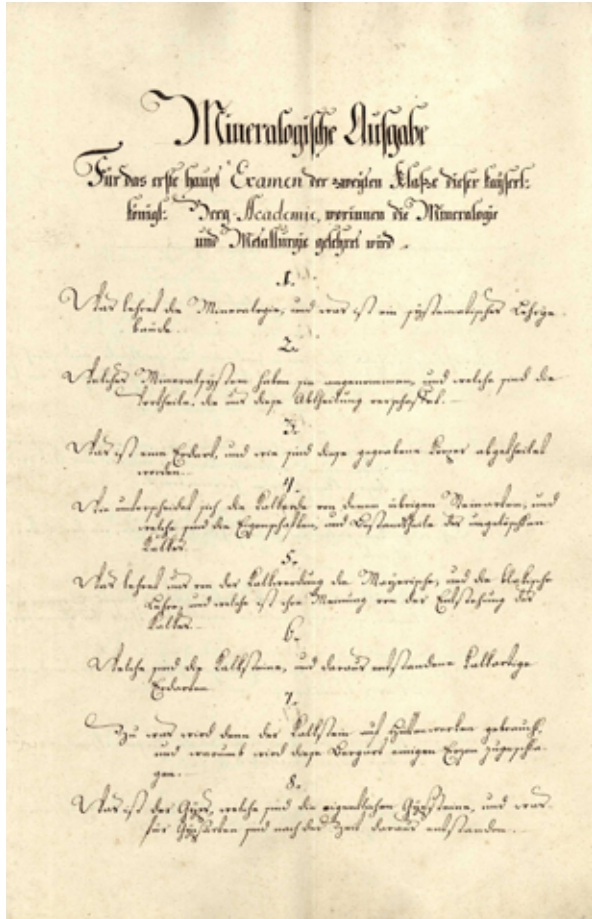 Mineralogische Aufgabe
Für das erste haupt Examen der zweyten Klaße dieser kaÿserl:
königl: Berg-Academie, worinnen die Mineralogie
und Metallurgie gelehret wird.
1.
Was lehret die Mineralogie, und was ist ein systematisches Lehrge
bäude.
2.
Welches Mineralsystem haben sie angenommen, und welche sind die
Vortheile, die uns diese Abtheilung verschaffet.
3.
Was ist eine Erdart, und wie sind diese gegrabene Körper abgetheilet
worden.
4.
Wie unterscheidet sich die Kalkerde von denen übrigen Steinarten, und
welche sind die Eigenschaften, und Bestandtheile des ungelöschten
Kalkes.
5.
Was lehret uns von der Kalkwerdung die Mayerische, und die blakische
Lehre, und welche ist ihre Meinung von der Entstehung des
Kalkes.
6.
Welche sind die Kalksteine, und daraus entstandene kalkartige
Erdarten.
7.
Zu was wird denn der Kalkstein auf Hüttenwerken gebraucht,
und warumb wird diese Bergart einigen Erzen zugeschla-
gen.
8.
Was ist der Gÿps, welche sind die eigentlichen Gÿpssteine, und was
für Gÿpsarten sind nach der Zeit daraus entstanden.